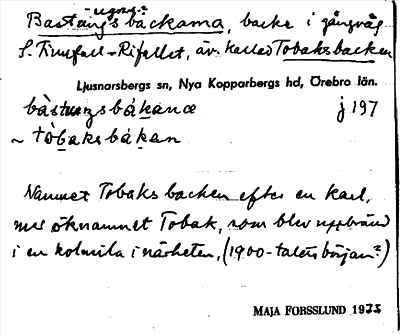 ugns-
Bastångsbackarna, backe i gångväg
S. Finnfall-Rifallet, äv. kallad Tobaksbacken
Ljusnarsbergs sn, Nya Kopparbergs hd, Örebro län.
bàstuŋsbákanæ j 197
~ tòbaksbákan
Namnet Tobaksbacken efter en karl,
med öknamnet Tobak, som blev uppbränd
i en kolmila i närheten, (1900-talets början?)
MAJA FORSSLUND 1935